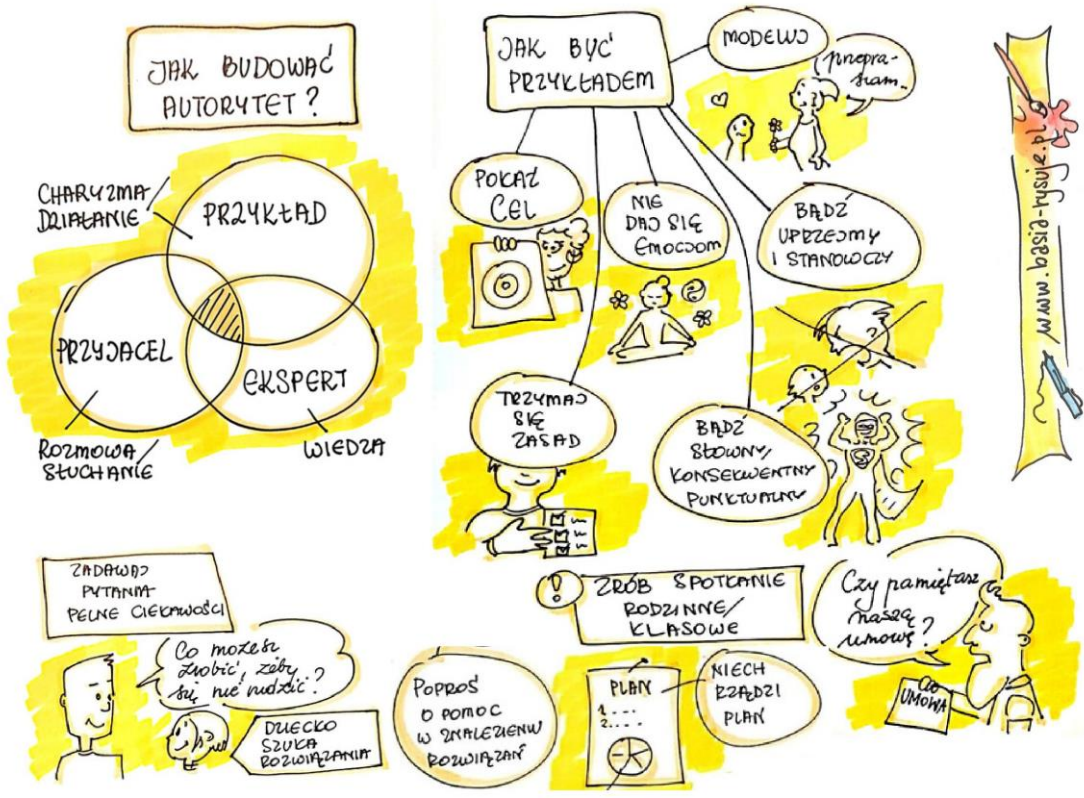 JAK BUDOWAĆ
AUTORYTET?
CHARYZMA/
DZIAŁANIE
PRZYKŁAD
PRZYJACEL
EKSPERT
ROZMOWA/
SŁUCHANIE
WIEDZA
JAK BYĆ
PRZYKŁADEM
MODELUJ
przepra-
szam.
POKAŻ
CEL
NIE
DAJ SIĘ
EMOCJOM
BĄDŹ
UPRZEJMY
I STANOWCZY
TRZYMAJ
SIĘ
ZASAD
BĄDŹ
SŁOWNY/
KONSEKWENTNY
PUNKTUALNY
www.basia-rysuje.pl
ZADAWAJ
PYTANIA
PEŁNE CIEKAWOŚCI
Co możesz
zrobić, żeby
się nie nudzić?
DZIECKO
SZUKA
ROZWIĄZANIA
POPROŚ
O POMOC
W ZNALEZIENIU
ROZWIĄZAŃ
! ZRÓB SPOTKANIE
RODZINNE/
KLASOWE
PLAN
1....
2....
NIECH
RZĄDZI
PLAN
Czy pamiętasz
naszą
umowę?
UMOWA